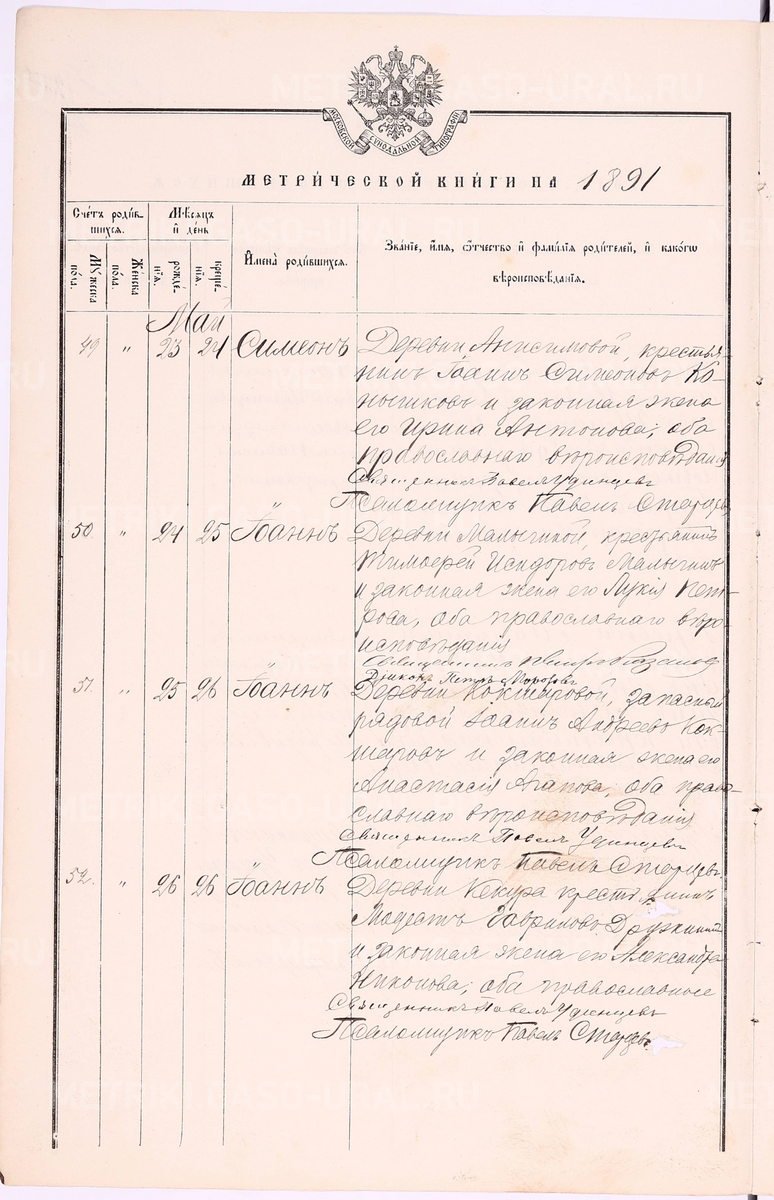 МОСКОВСКОЙ СУНОДАЛЬНОЙ ТИПОГРАФІИ
МЕТРИ́ЧЕСКОЙ КНИ́ГИ НА 1891
Счéтъ роди́в-
шихся.
Мѣсяцъ
и̂ день
Мýжеска
пола.
Жéнска
пола.
рождé-
нїя.
крещé-
нїя.
И̂мена̀ роди́вшихся.
Звáнїе, и̂́мя, ѻ҆́тчество и̂ фами́лїя роди́телей, и̂ какóгѡ
вѣроисповѣ́данїя.
Май
49 " 23 24 Симеонъ
Деревни Анисимовой, крестья-
нинъ Іоаннъ Симеоновъ Ко-
нышковъ и законная жена
его Ирина Антонова; оба
православнаго вѣроисповѣданія
Священникъ Павелъ Удинцевъ
Псаломщикъ Павелъ Старцевъ
50 " 24 25 Іоаннъ
Деревни Малыгиной, крестьянинъ
Тимоѳей Исидоровъ Малыгинъ
и законная жена его Лукія Пет-
рова, оба православнаго вѣро-
исповѣданія
Священникъ Петръ
Діаконъ Петръ Морозовъ
51. " 25 26 Іоаннъ
Деревни Кокшаровой, запасный
рядовой Іоаннъ Андреевъ Кок-
шаровъ и законная жена его
Анастасія Агапова; оба право-
славнаго вѣроисповѣданія
Священникъ Павелъ Удинцевъ
Псаломщикъ Павелъ Старцевъ
52. " 26 26 Іоаннъ
Деревни Кекура крестьянинъ
Модестъ Гавриловъ Дружининъ
и законная жена его Александра
Никонова; оба православные
Священникъ Павелъ Удинцевъ
Псаломщикъ Павелъ Старцевъ